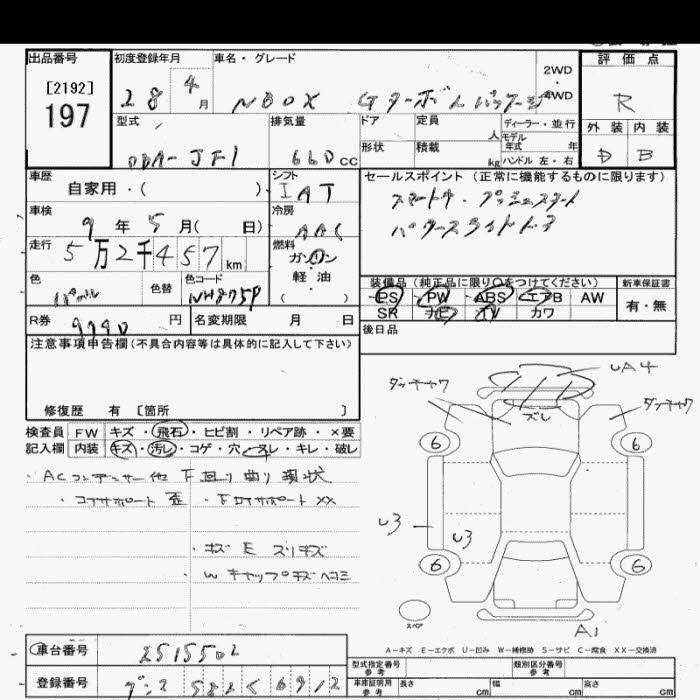 出品番号
[2192]
197
初度登録年月
28 4 月
車名・グレード
NBOX Gターボ Lパッケージ
2WD
・
4WD
評価点
R
外装 内装
D B
型式
DBA-JF1
排気量
660 cc
ドア
定員 人
形状
積載 kg
ディーラー・並行
モデル
年式 年
ハンドル 左・右
車歴
自家用・( )
シフト
IAT
車検
9 年 5 月( 日)
冷房
AAC
走行
5万2千457 km
燃料
ガソリン
・
軽・油
( )
色
色替
色コード
NH875P
セールスポイント(正常に機能するものに限ります)
スマートキ・プッシュスタート
パワースライドドア
装備品(純正品に限り○をつけてください)
PS PW ABS エアB AW
SR ナビ TV カワ
新車保証書
有・無
R券
9790 円
名変期限 月 日
後日品
注意事項申告欄(不具合内容等は具体的に記入して下さい)
修復歴 有 〔箇所 〕
検査員
記入欄
FW キズ・飛石・ヒビ割・リペア跡・×要
内装 キズ・汚レ・コゲ・穴・スレ・キレ・破レ
・ACコンデンサー他 下回り曲り 現状
・コアサポート歪
・下ロアサポートXX
・キズ E スリキズ
・W キャップキズヘコミ
UA4
ダッチャク
ズレ
ダッチャク
6
6
U3
U3
6
6
スペア
A1
A-キズ E-エクボ U-凹み W-補修跡 S-サビ C-腐食 XX-交換済
車台番号
2515502
登録番号
型式指定番号
参考
類別区分番号
参考
車庫証明用
参考
長さ cm
幅 cm
高さ cm